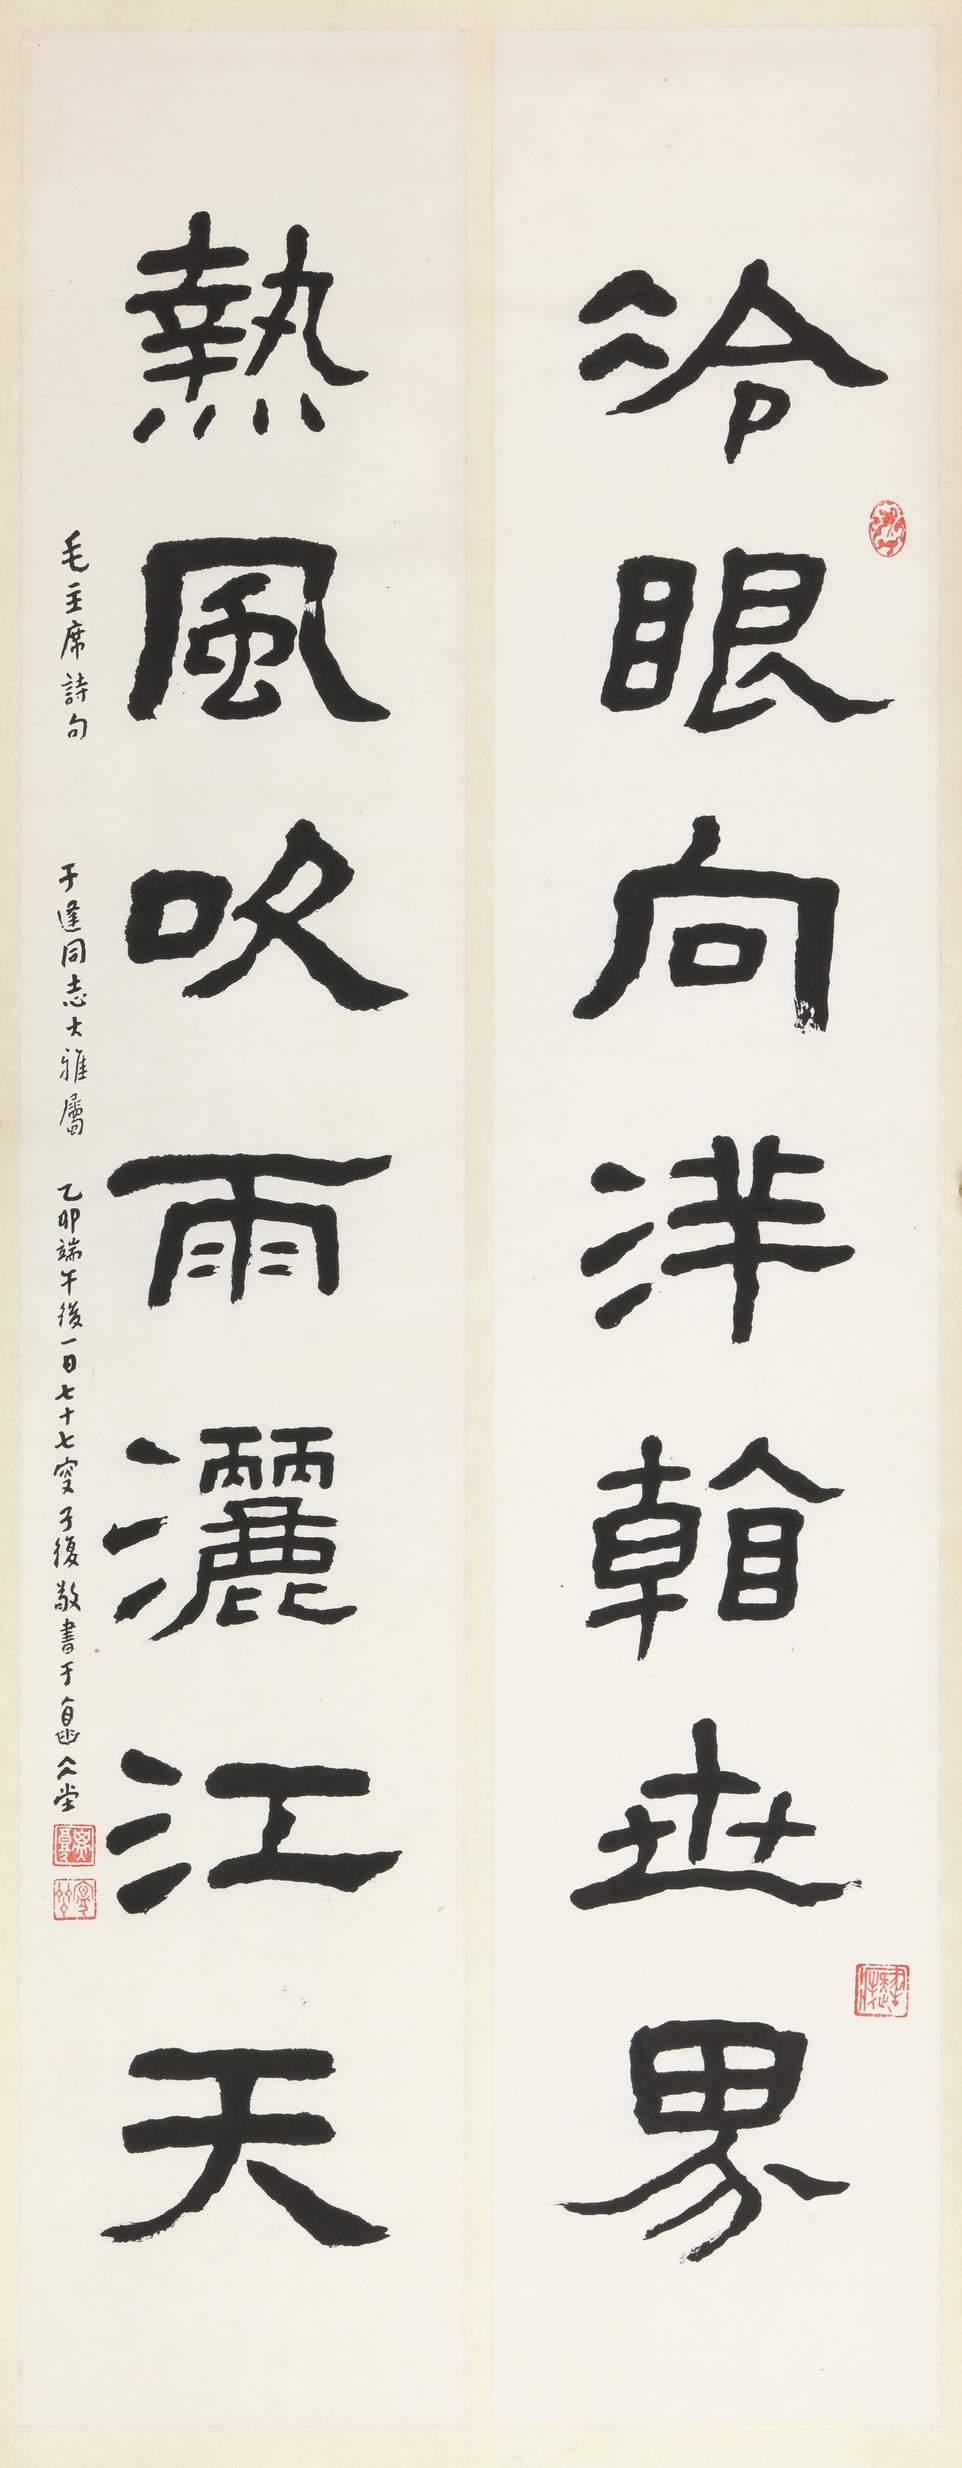 冷眼向洋看世界
熱風吹雨灑江天
毛主席詩句
于逢同志大雅屬
乙卯端午後一日七十七叟子復敬書于